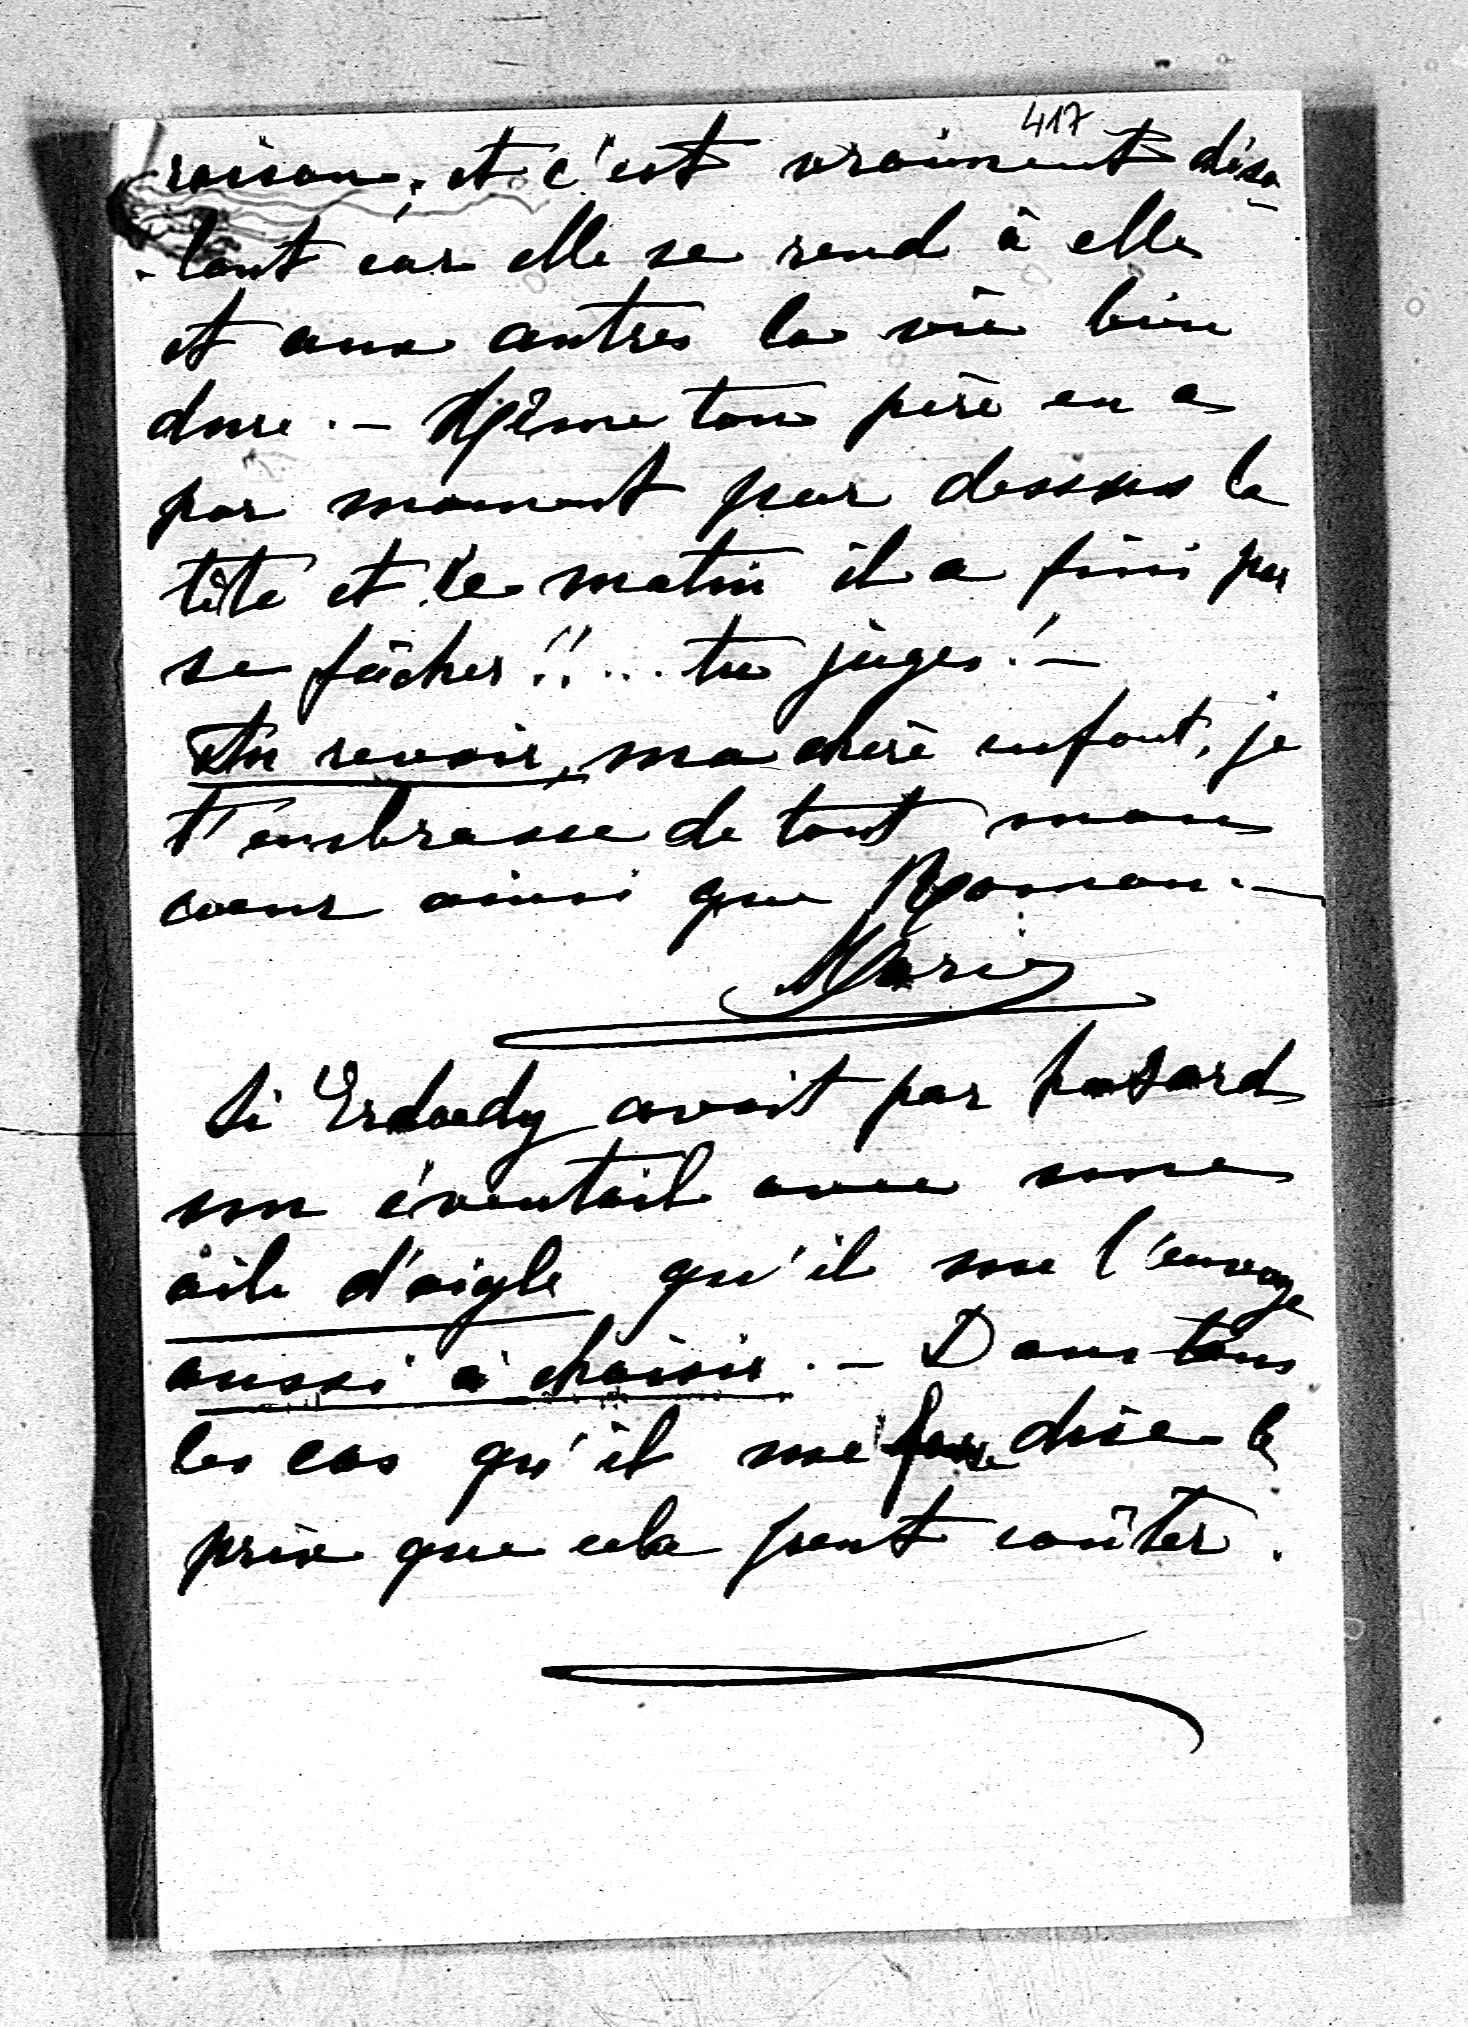 417
raison, et c'est vraiment déso-
-lant car elle se rend à elle
et aux autres la vie bien
dure. - Même ton père en a
par moment par dessus la
tête et ce matin il a fini par
se fâcher!!... tu juges! -
Au revoir, ma chère enfant, je
t'embrasse de tout mon
coeur ainsi que Roman. -
Marie
Si Erdoedy avait par hasard
un éventail avec une
aile d'aigle qu'il me l'envoye
aussi à choisir. - Dans tous
les cas qu'il me dise le
prix que cela peut coûter.